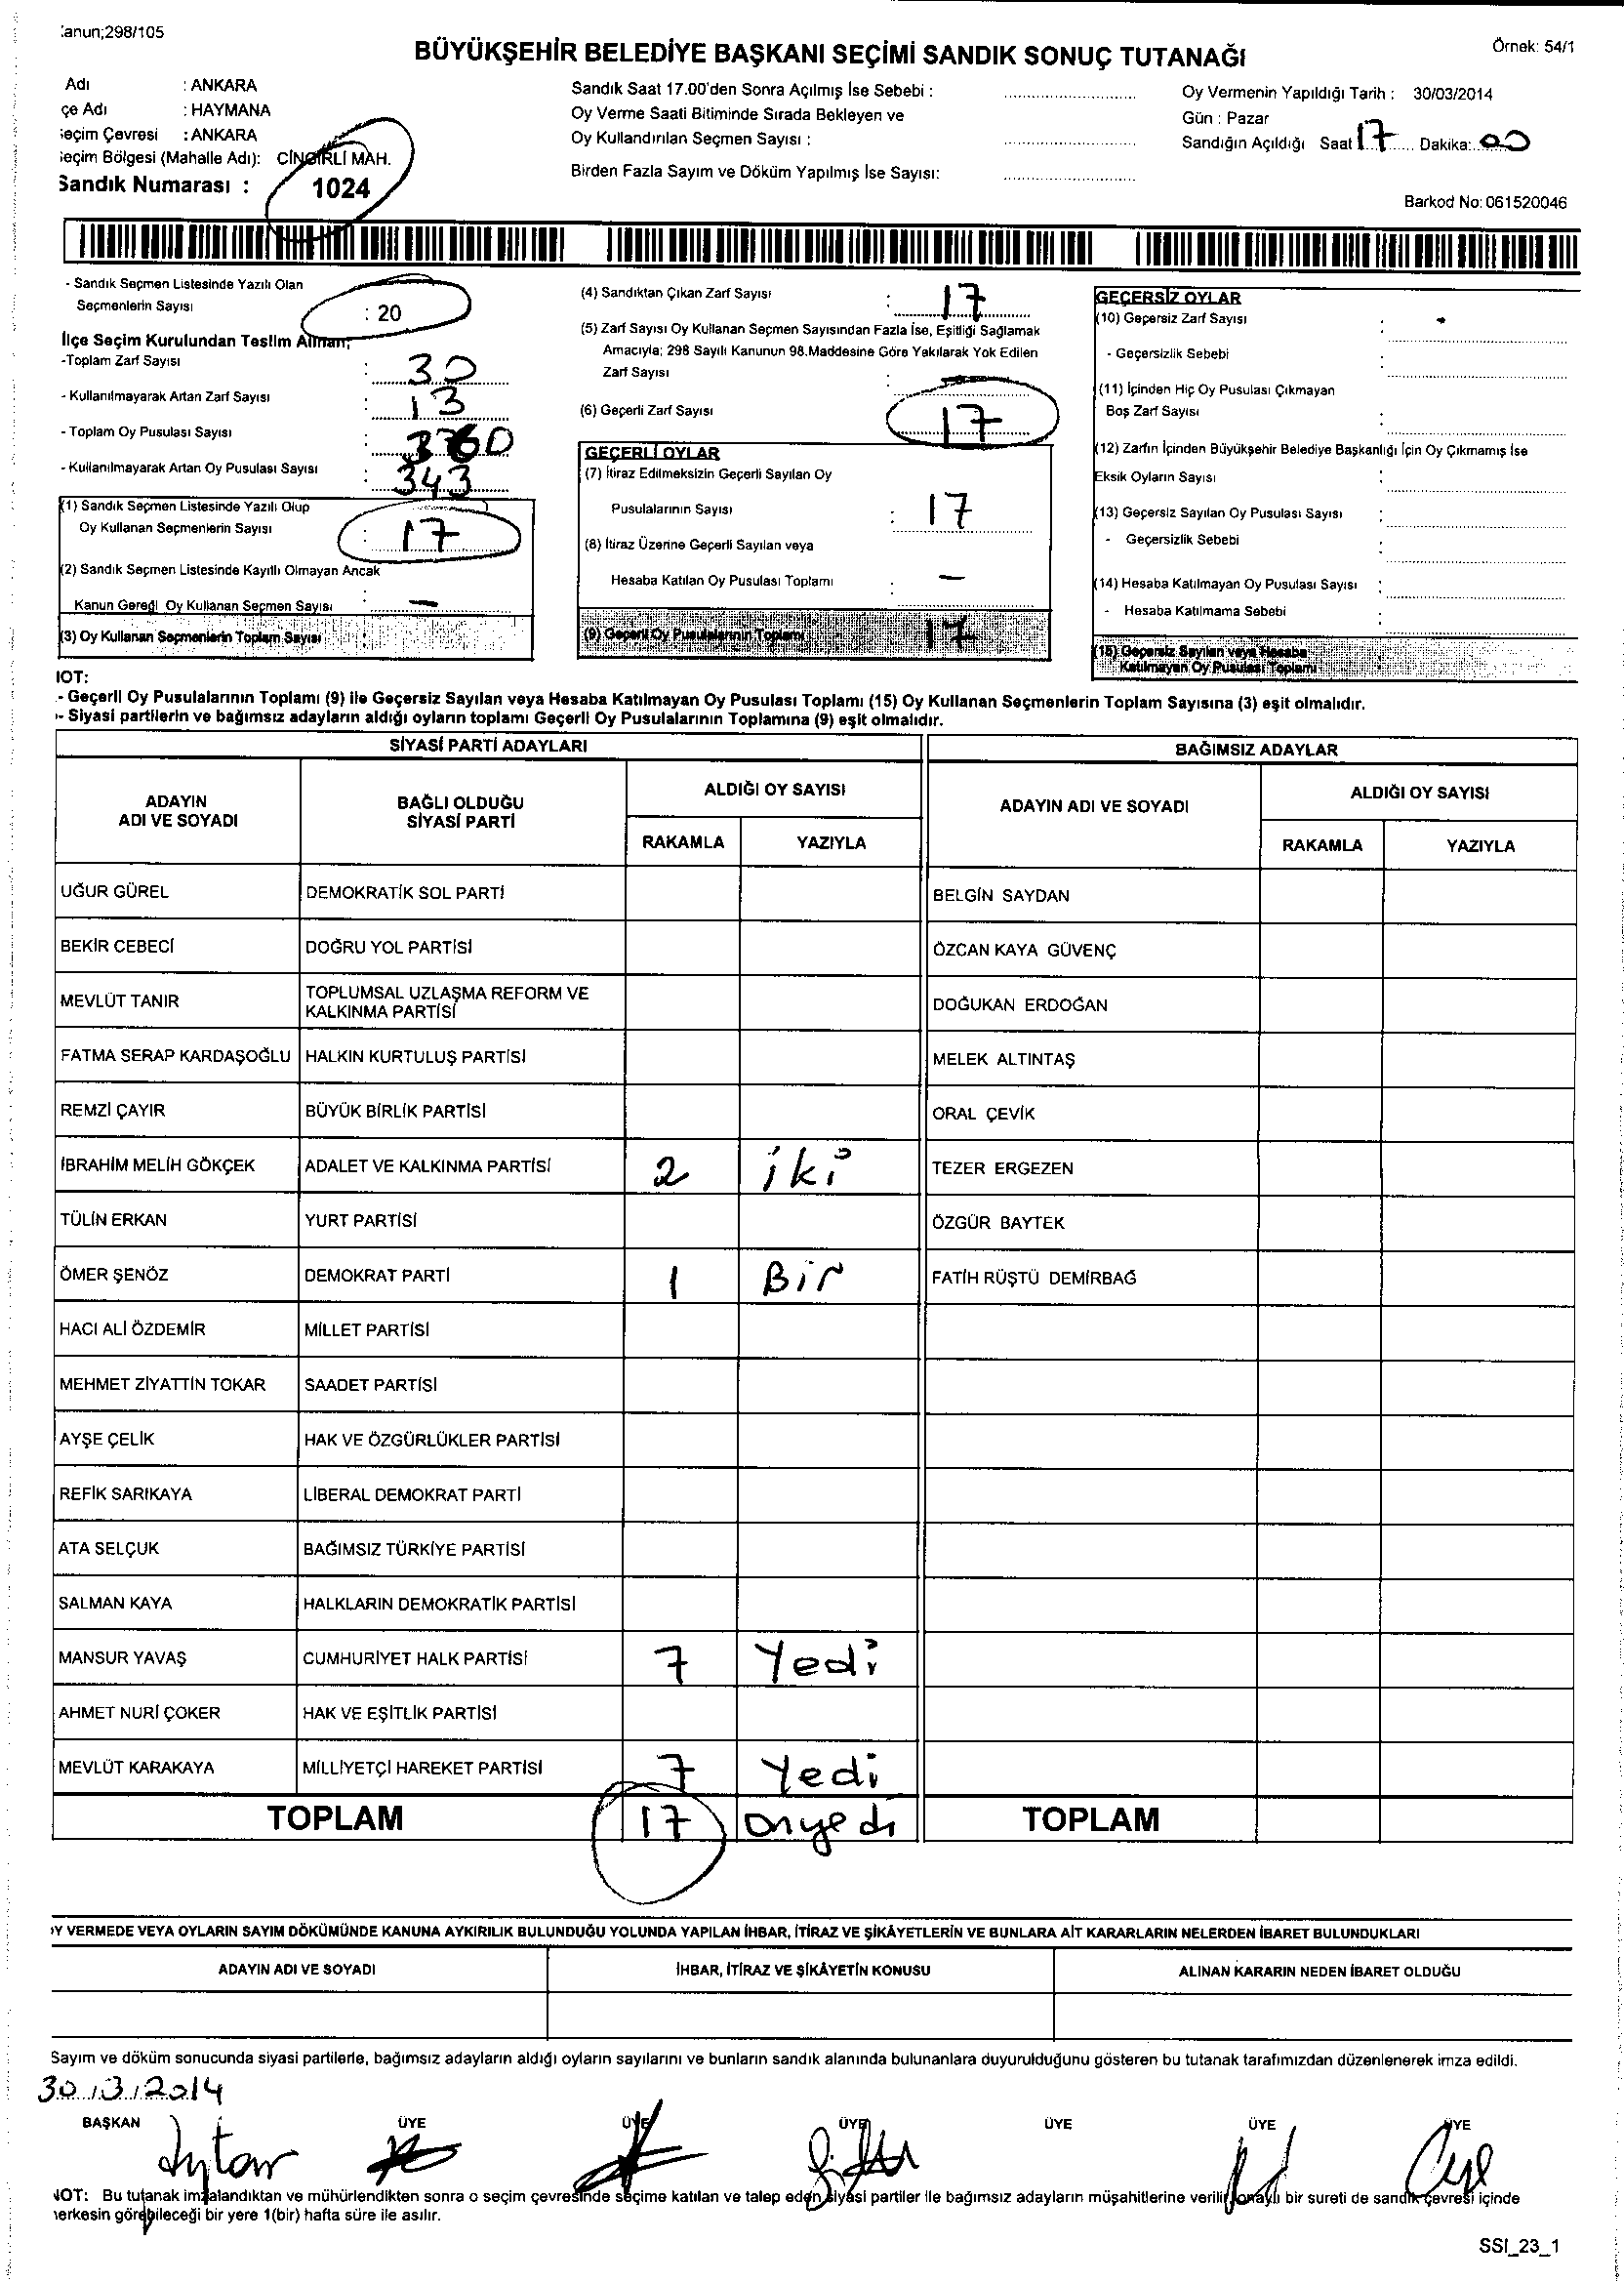 Kanun;298/105
Örnek: 54/1
BÜYÜKŞEHİR BELEDİYE BAŞKANI SEÇİMİ SANDIK SONUÇ TUTANAĞI
Adı : ANKARA
çe Adı : HAYMANA
eçim Çevresi : ANKARA
eçim Bölgesi (Mahalle Adı): CİNGİRLİ MAH.
Sandık Numarası : 1024
Sandık Saat 17.00'den Sonra Açılmış İse Sebebi :
Oy Verme Saati Bitiminde Sırada Bekleyen ve
Oy Kullandırılan Seçmen Sayısı :
Birden Fazla Sayım ve Döküm Yapılmış İse Sayısı:
Oy Vermenin Yapıldığı Tarih : 30/03/2014
Gün : Pazar
Sandığın Açıldığı Saat 17 Dakika: 00
Barkod No: 061520046
- Sandık Seçmen Listesinde Yazılı Olan
Seçmenlerin Sayısı : 20
İlçe Seçim Kurulundan Teslim Alınan;
-Toplam Zarf Sayısı : 30
- Kullanılmayarak Artan Zarf Sayısı : 13
- Toplam Oy Pusulası Sayısı : 360
- Kullanılmayarak Artan Oy Pusulası Sayısı : 343
(1) Sandık Seçmen Listesinde Yazılı Olup
Oy Kullanan Seçmenlerin Sayısı : 17
(2) Sandık Seçmen Listesinde Kayıtlı Olmayan Ancak
Kanun Gereği Oy Kullanan Seçmen Sayısı : -
(3) Oy Kullanan Seçmenlerin Toplam Sayısı :
(4) Sandıktan Çıkan Zarf Sayısı : 17
(5) Zarf Sayısı Oy Kullanan Seçmen Sayısından Fazla İse, Eşitliği Sağlamak
Amacıyla; 298 Sayılı Kanunun 98.Maddesine Göre Yakılarak Yok Edilen
Zarf Sayısı : -
(6) Geçerli Zarf Sayısı : 17
GEÇERLİ OYLAR
(7) İtiraz Edilmeksizin Geçerli Sayılan Oy
Pusulalarının Sayısı : 17
(8) İtiraz Üzerine Geçerli Sayılan veya
Hesaba Katılan Oy Pusulası Toplamı : -
(9) Geçerli Oy Pusulalarının Toplamı : 17
GEÇERSİZ OYLAR
(10) Geçersiz Zarf Sayısı :
- Geçersizlik Sebebi :
(11) İçinden Hiç Oy Pusulası Çıkmayan
Boş Zarf Sayısı :
(12) Zarfın İçinden Büyükşehir Belediye Başkanlığı İçin Oy Çıkmamış İse
Eksik Oyların Sayısı :
(13) Geçersiz Sayılan Oy Pusulası Sayısı :
- Geçersizlik Sebebi :
(14) Hesaba Katılmayan Oy Pusulası Sayısı :
- Hesaba Katılmama Sebebi :
(15) Geçersiz Sayılan veya Hesaba
Katılmayan Oy Pusulası Toplamı :
NOT:
- Geçerli Oy Pusulalarının Toplamı (9) ile Geçersiz Sayılan veya Hesaba Katılmayan Oy Pusulası Toplamı (15) Oy Kullanan Seçmenlerin Toplam Sayısına (3) eşit olmalıdır.
- Siyasi partilerin ve bağımsız adayların aldığı oyların toplamı Geçerli Oy Pusulalarının Toplamına (9) eşit olmalıdır.
SİYASİ PARTİ ADAYLARI BAĞIMSIZ ADAYLAR
ADAYIN ADI VE SOYADI BAĞLI OLDUĞU SİYASİ PARTİ ALDIĞI OY SAYISI ADAYIN ADI VE SOYADI ALDIĞI OY SAYISI
RAKAMLA YAZIYLA RAKAMLA YAZIYLA
UĞUR GÜREL DEMOKRATİK SOL PARTİ BELGİN SAYDAN
BEKİR CEBECİ DOĞRU YOL PARTİSİ ÖZCAN KAYA GÜVENÇ
MEVLÜT TANIR TOPLUMSAL UZLAŞMA REFORM VE KALKINMA PARTİSİ DOĞUKAN ERDOĞAN
FATMA SERAP KARDAŞOĞLU HALKIN KURTULUŞ PARTİSİ MELEK ALTINTAŞ
REMZİ ÇAYIR BÜYÜK BİRLİK PARTİSİ ORAL ÇEVİK
İBRAHİM MELİH GÖKÇEK ADALET VE KALKINMA PARTİSİ 2 iki TEZER ERGEZEN
TÜLİN ERKAN YURT PARTİSİ ÖZGÜR BAYTEK
ÖMER ŞENÖZ DEMOKRAT PARTİ 1 Bir FATİH RÜŞTÜ DEMİRBAĞ
HACI ALİ ÖZDEMİR MİLLET PARTİSİ
MEHMET ZİYATTİN TOKAR SAADET PARTİSİ
AYŞE ÇELİK HAK VE ÖZGÜRLÜKLER PARTİSİ
REFİK SARIKAYA LİBERAL DEMOKRAT PARTİ
ATA SELÇUK BAĞIMSIZ TÜRKİYE PARTİSİ
SALMAN KAYA HALKLARIN DEMOKRATİK PARTİSİ
MANSUR YAVAŞ CUMHURİYET HALK PARTİSİ 7 Yedi
AHMET NURİ ÇOKER HAK VE EŞİTLİK PARTİSİ
MEVLÜT KARAKAYA MİLLİYETÇİ HAREKET PARTİSİ 7 Yedi
TOPLAM 17 onyedi TOPLAM
OY VERMEDE VEYA OYLARIN SAYIM DÖKÜMÜNDE KANUNA AYKIRILIK BULUNDUĞU YOLUNDA YAPILAN İHBAR, İTİRAZ VE ŞİKÂYETLERİN VE BUNLARA AİT KARARLARIN NELERDEN İBARET BULUNDUKLARI
ADAYIN ADI VE SOYADI İHBAR, İTİRAZ VE ŞİKÂYETİN KONUSU ALINAN KARARIN NEDEN İBARET OLDUĞU
Sayım ve döküm sonucunda siyasi partilerle, bağımsız adayların aldığı oyların sayılarını ve bunların sandık alanında bulunanlara duyurulduğunu gösteren bu tutanak tarafımızdan düzenlenerek imza edildi.
30/3/2014
BAŞKAN ÜYE ÜYE ÜYE ÜYE ÜYE ÜYE
NOT: Bu tutanak imzalandıktan ve mühürlendikten sonra o seçim çevresinde seçime katılan ve talep eden siyasi partiler ile bağımsız adayların müşahitlerine verilir, onaylı bir sureti de sandık çevresi içinde
herkesin görebileceği bir yere 1(bir) hafta süre ile asılır.
SSI_23_1